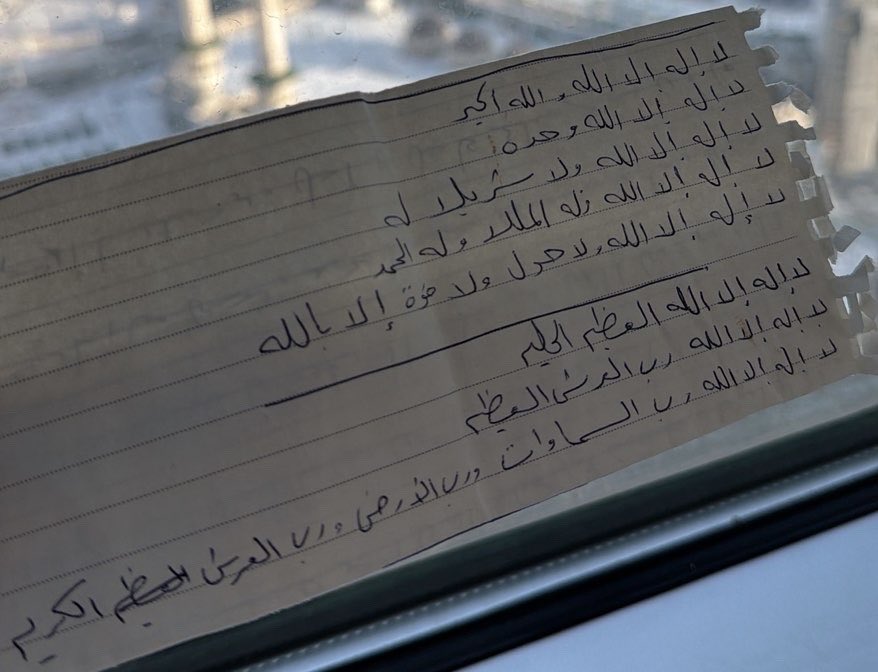 لا إله إلا الله، والله أكبر
لا إله إلا الله وحده
لا إله إلا الله ولا شريك له
لا إله إلا الله له الملك وله الحمد
لا إله إلا الله، ولا حول ولا قوة إلا بالله
لا إله إلا الله العظيم الحليم
لا إله إلا الله رب العرش العظيم
لا إله إلا الله رب السماوات ورب الأرض ورب العرش الكريم